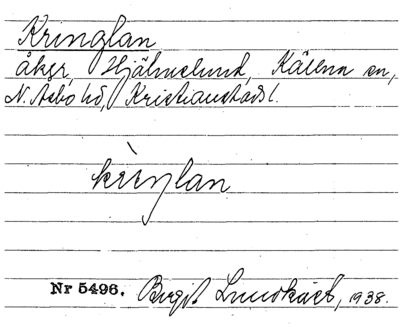 Kringlan
åker, Hjälmslund, Källna sn,
N. Åsbo hd, Kristianstads l.
krìŋlan
Nr 5496. Birgit Lundkvist, 1938.